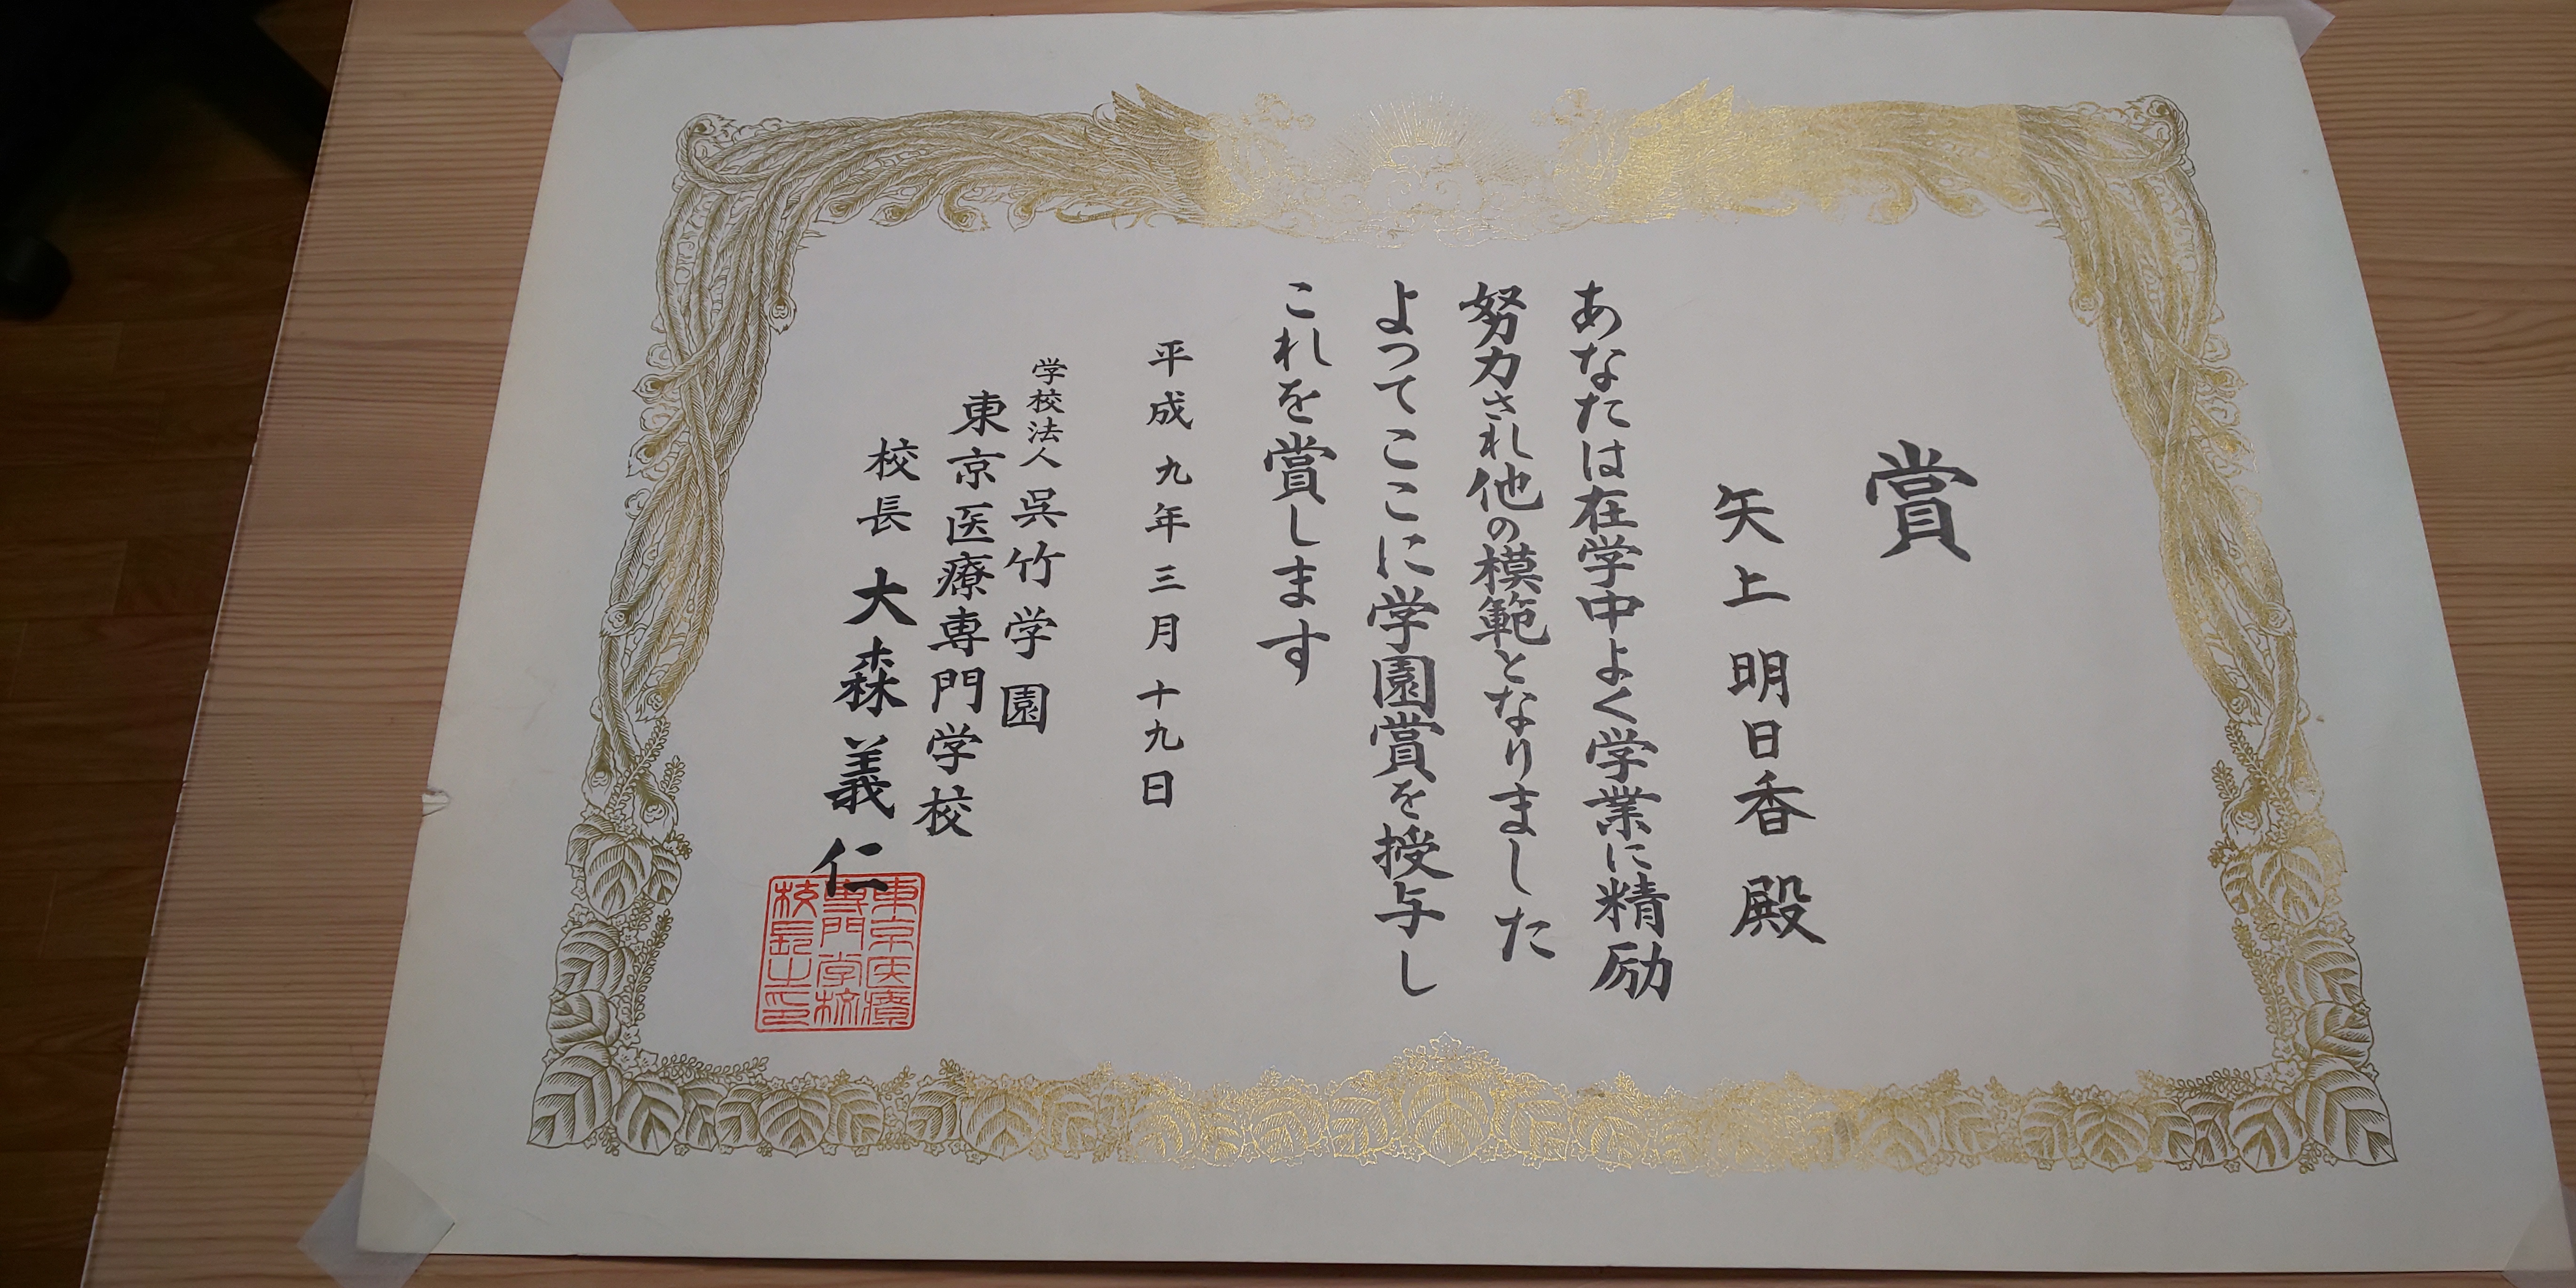 賞
矢上明日香 殿
あなたは在学中よく学業に精励
努力され他の模範となりました
よってここに学園賞を授与し
これを賞します
平成九年三月十九日
学校法人 呉竹学園
東京医療専門学校
校長 大森義仁
東京医療
専門学校
校長之印